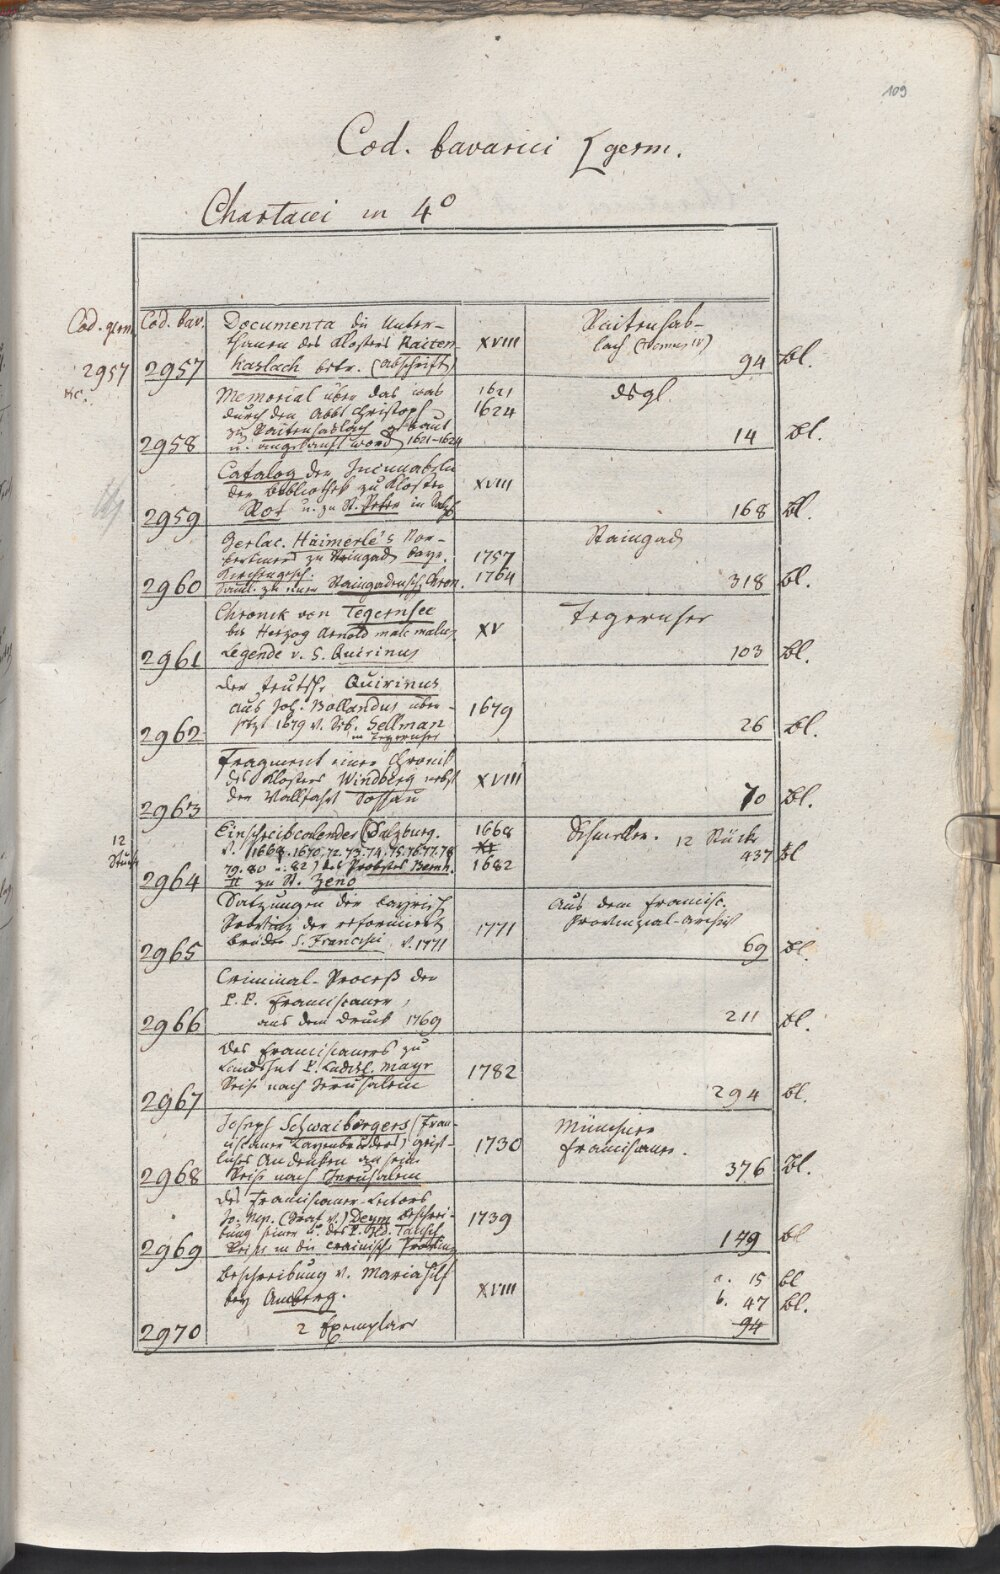 109
Cod. bavarici [germ.
Chartacei in 4º
Cod. germ. Cod. bav.
2957 2957 Documenta die Unter-
thanen des Klosters Raiten-
haslach betr. (Abschrift) XVIII Raitenhas-
lach 94 Bl.
&c.
2958 Memorial über das was
durch den Abbt Christoph
zu Raitenhaslach gebaut
u. angekauft word. 1621-1624 1621
1624 dsgl 14 Bl.
2959 Catalog der Incunabeln
der Bibliothek zu Kloster
Rot u. zu St. Peter in Salzb. XVIII 168 Bl.
2960 Gerlac. Haimerle's Nor-
bertiners zu Staingad bayr.
Kirchengesch.
Samt. zu einer Staingadensch. Chron. 1757
1764 Staingad 318 Bl.
2961 Chronik von Tegernsee
bis Herzog Arnold male malus
Legende v. S. Quirinus XV Tegernsee 103 Bl.
2962 Der teutsche Quirinus
aus Joh. Bollandus über-
setzt 1679 v. Seb. Sellman
in Tegernsee 1679 26 Bl.
2963 Fragment einer Chronik
des Klosters Windberg nebst
der Wallfahrt Sossau XVIII 70 Bl.
12
Stück 2964 Einschreibcalender (Salzburg.
v. 1668. 1670. 72. 73. 74. 75. 76. 77. 78
79. 80 u. 82) des Probstes Bernh.
II zu St. Zeno 1668
XI
1682 Schmeller. 12 Stücke
437 Bl
2965 Satzungen der bayrisch.
Provinz der reformirt.
Brüder S. Francisci v. 1771 1771 Aus dem francisc.
Provinzial-Archiv 69 Bl.
2966 Criminal-Proceß der
P. P. Franciscaner,
aus dem Druck 1769 211 Bl.
2967 Des Franciscaners zu
Landshut P. Ladisl. Mayr
Reise nach Jerusalem 1782 294 Bl.
2968 Joseph Schwaibergers (Fran-
ciscaner Layenbruders) geist-
liches Andenken an seine
Reise nach Jerusalem 1730 Münchner
Franciscaner. 376 Bl.
2969 Des Franciscaner-Lectors
Jo. Nep. (Graf v.) Deym Beschrei-
bung seiner u. des P.
Reise in die crainische Provinz 1739 149 Bl
2970 Beschreibung v. Mariahilf
bey Amberg.
2 Exemplare XVIII a. 15 Bl
b. 47 Bl.
94